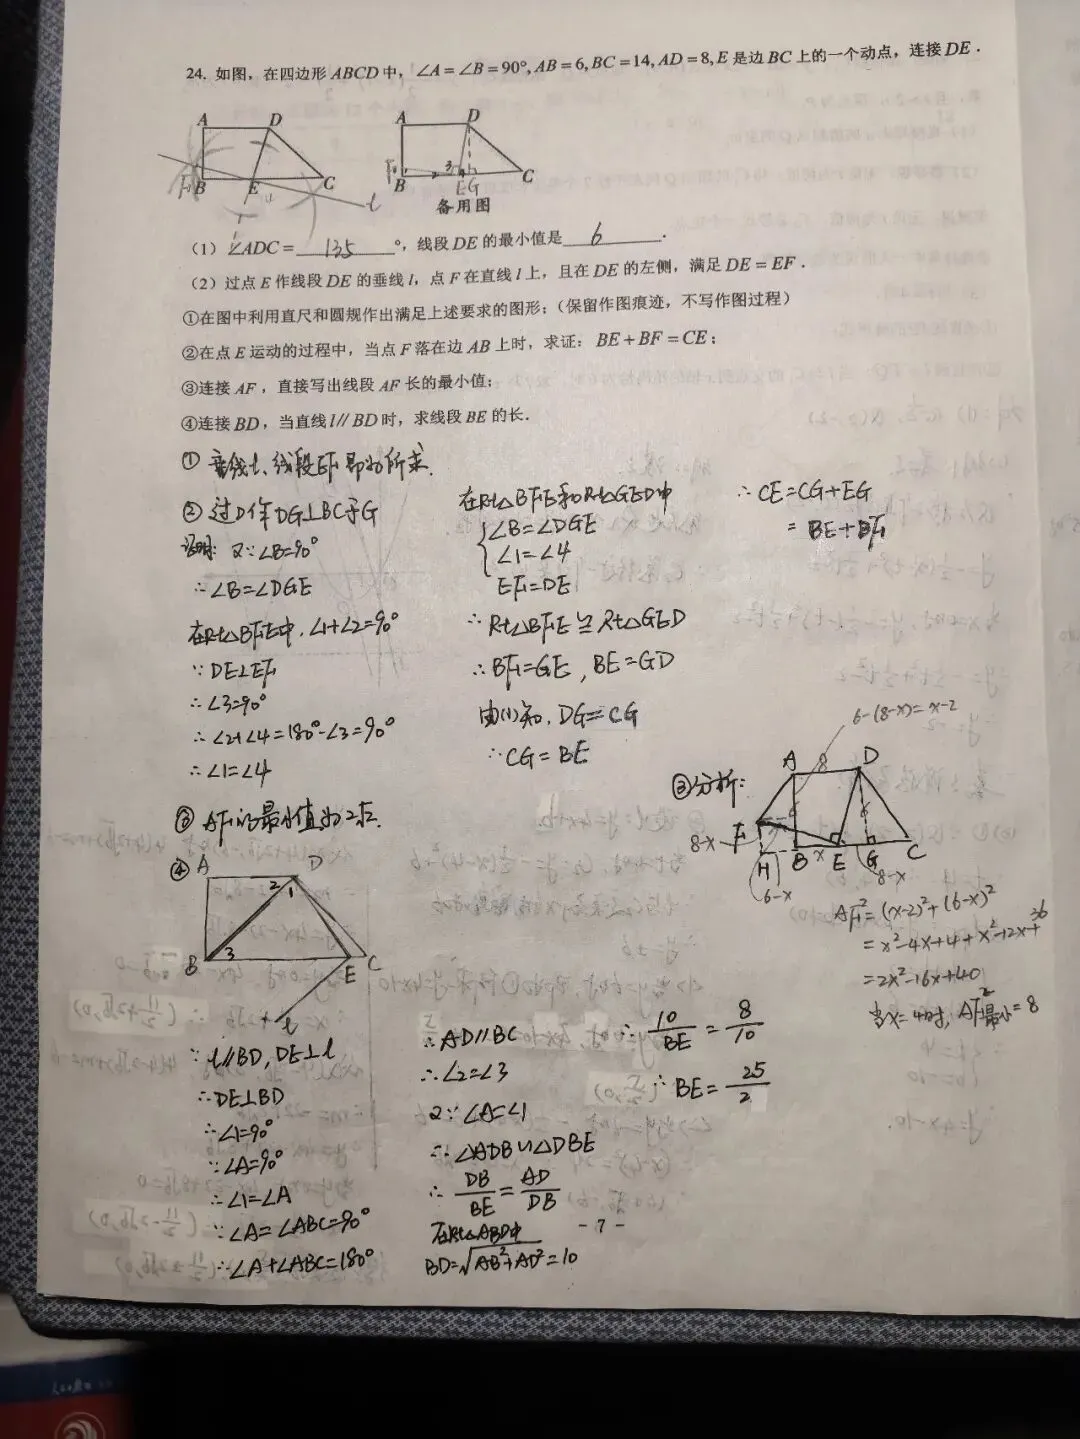 24. 如图，在四边形ABCD中，∠A=∠B=90°, AB=6, BC=14, AD=8, E是边BC上的一个动点，连接DE．
A D
F B E C l
A D
F B E G C
备用图
（1）∠ADC= 135 °，线段DE的最小值是 6 ．
（2）过点E作线段DE的垂线l，点F在直线l上，且在DE的左侧，满足DE=EF．
①在图中利用直尺和圆规作出满足上述要求的图形；（保留作图痕迹，不写作图过程）
②在点E运动的过程中，当点F落在边AB上时，求证：BE+BF=CE；
③连接AF，直接写出线段AF长的最小值；
④连接BD，当直线l∥BD时，求线段BE的长．
① 垂线l、线段EF即为所求.
② 过D作DG⊥BC于G
证明: 又∵∠B=90°
∴∠B=∠DGE
在Rt△BFE中,∠1+∠2=90°
∵DE⊥EF
∴∠3=90°
∴∠2+∠4=180°-∠3=90°
∴∠1=∠4
在Rt△BFE和Rt△GED中
∠B=∠DGE
∠1=∠4
EF=DE
∴Rt△BFE≌Rt△GED
∴BF=GE, BE=GD
由(1)知, DG=CG
∴CG=BE
∴CE=CG+EG
=BE+BF
③ AF的最小值为2√2.
③分析:
6-(8-x)=x-2
A 8 D
8-x F 6
H B x E G C
6-x 8-x
AF²=(x-2)²+(6-x)²
=x²-4x+4+x²-12x+36
=2x²-16x+40
当x=4时, AF²最小=8
④
A D
2 1
B 3 E C
l
∵l∥BD, DE⊥l
∴DE⊥BD
∴∠1=90°
∵∠A=90°
∴∠1=∠A
∵∠A=∠ABC=90°
∴∠A+∠ABC=180°
∴AD∥BC
∴∠2=∠3
又∵∠A=∠1
∴△ADB∽△DBE
∴DB/BE=AD/DB
在Rt△ABD中
BD=√AB²+AD²=10
∴10/BE=8/10
∴BE=25/2
- 7 -